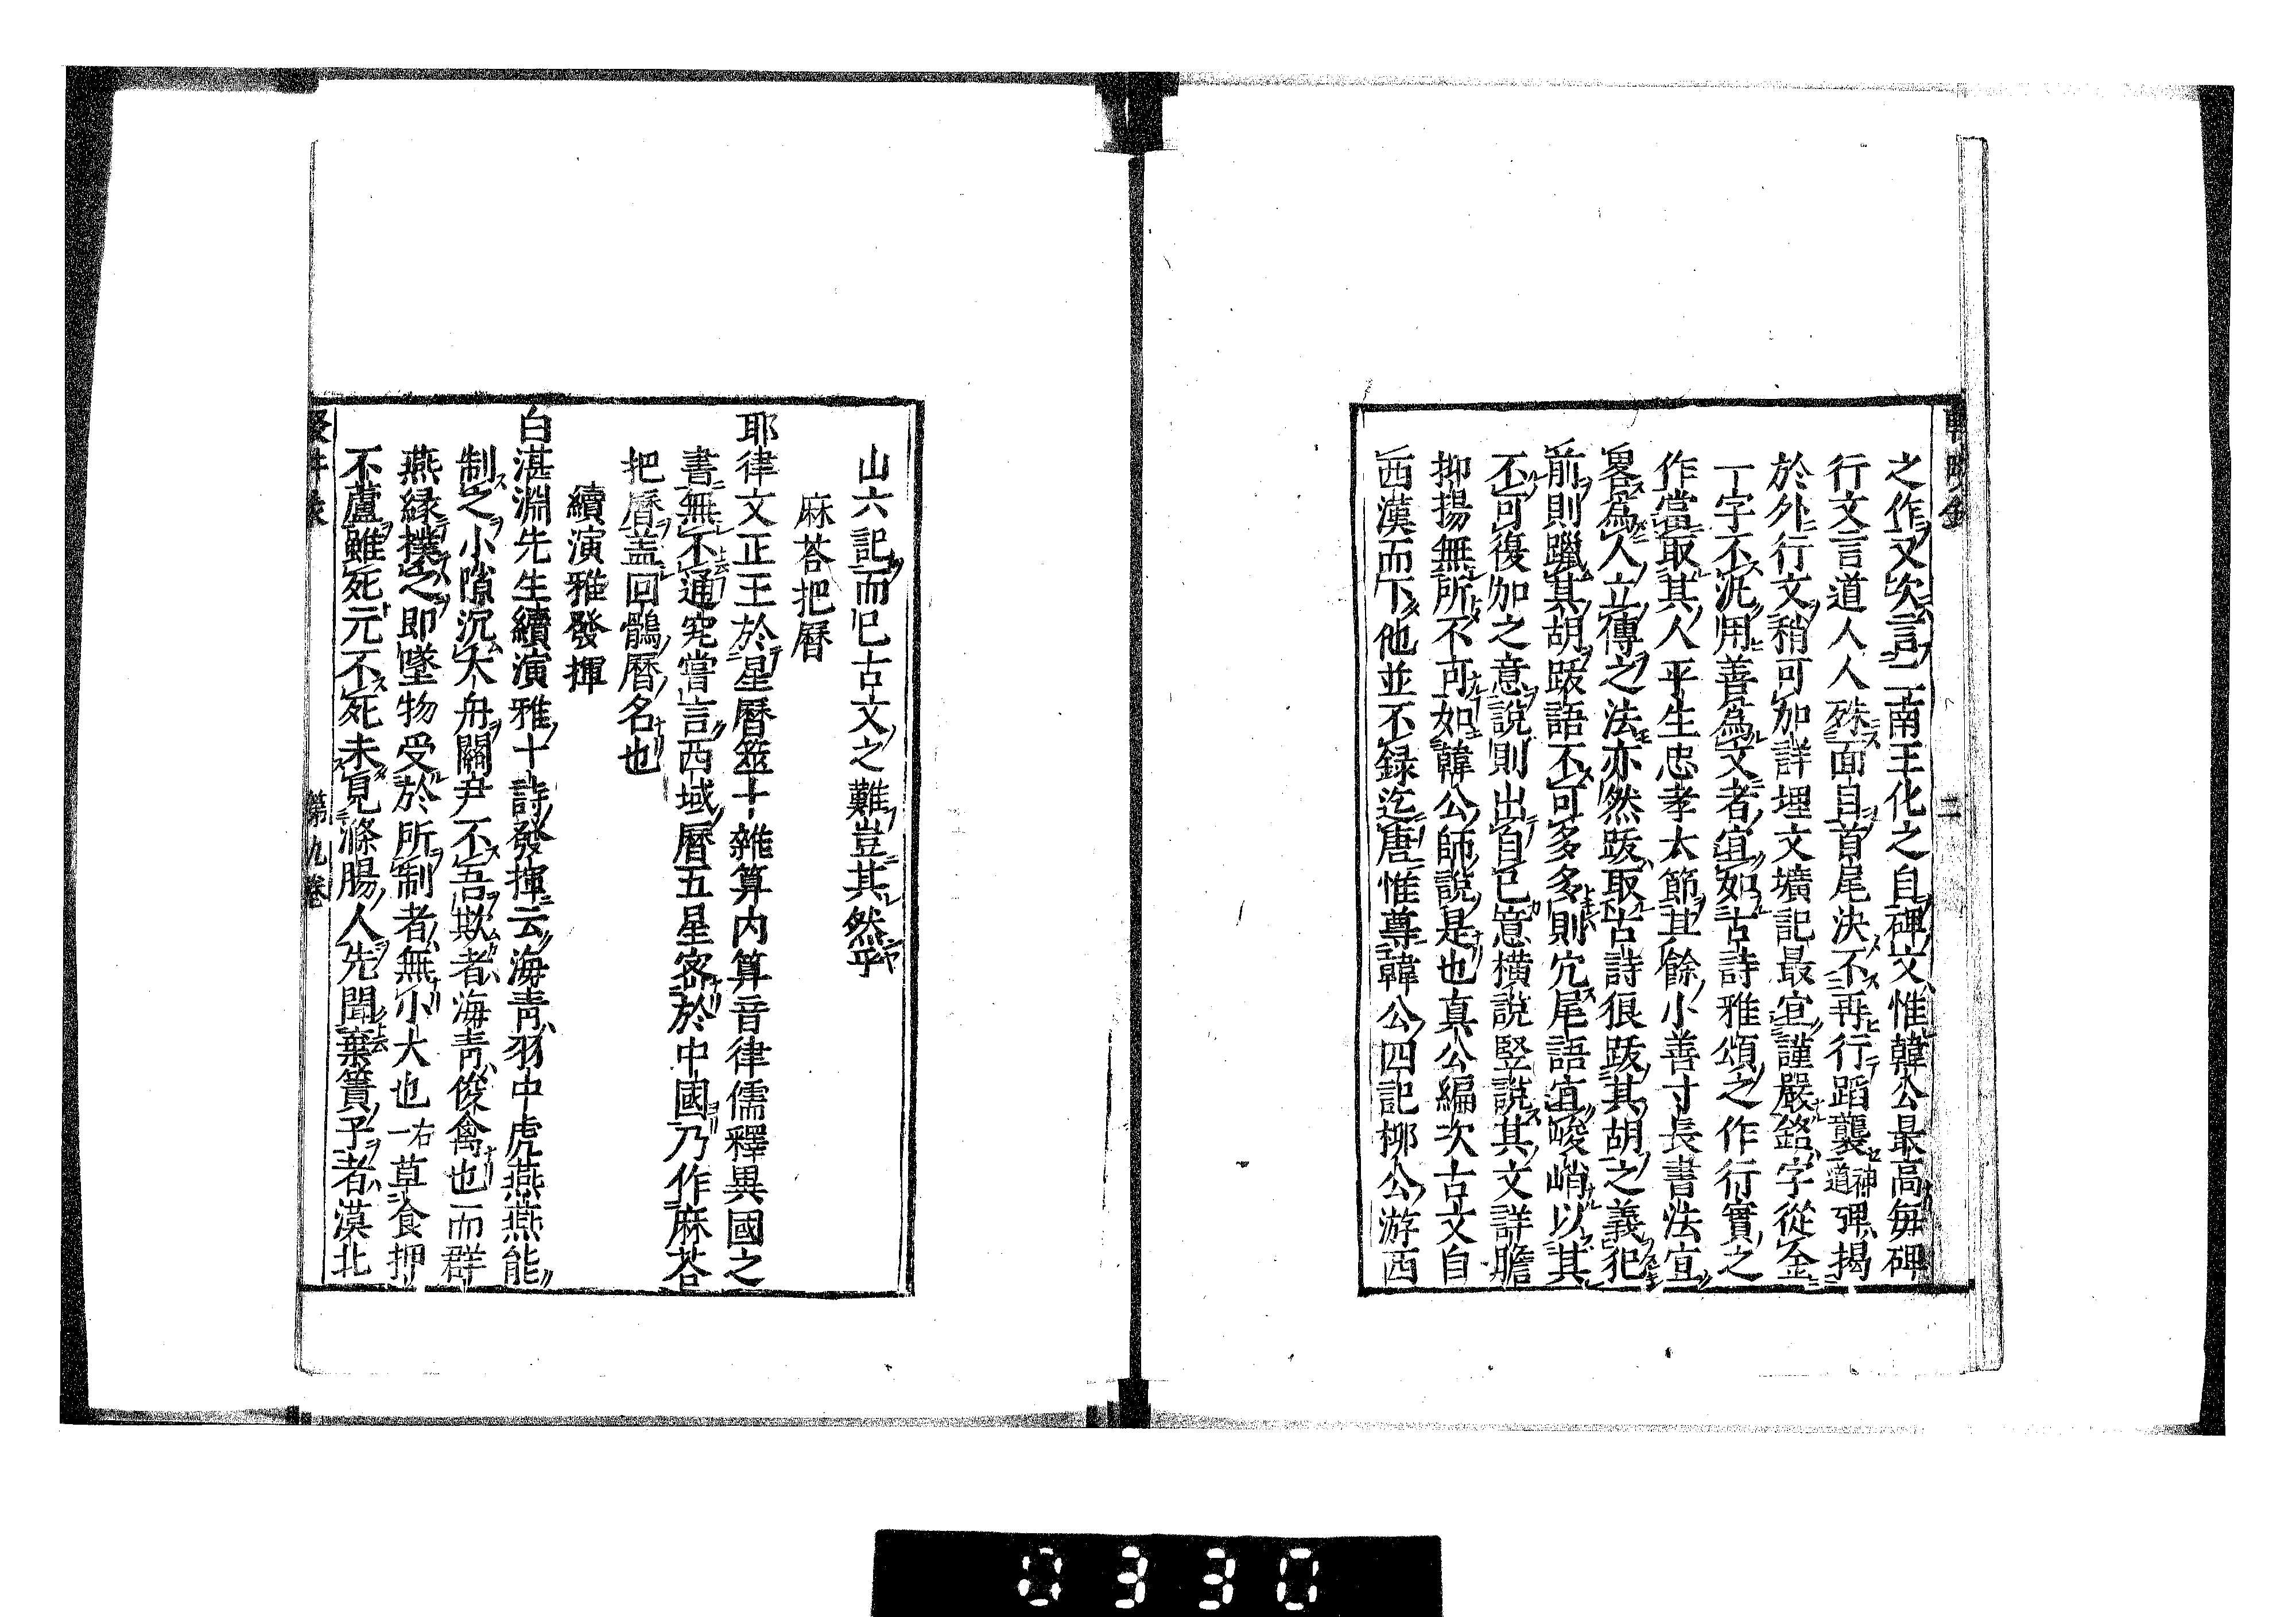 之作又次言二南王化之自碑文惟韓公最高每碑
行文言道人人殊面目首尾決不再行蹈襲神道碑揭
於外行文稍可加詳埋文壙記最宜謹嚴銘字從金
一字不泥用善爲文者宜如古詩雅頌之作行實之
作當取其人平生忠孝大節其餘小善寸長書法宜
畧爲人立傳之法亦然跋取古詩狼跋其胡之義犯
前則躐其胡跋語不可多多則冗尾語宜峻峭以其
不可復加之意說則出自已意橫說竪說其文詳贍
抑揚無所不可如韓公師說是也真公編次古文自
西漢而下他並不録迄唐惟尊韓公四記柳公游西
二
山六記而已古文之難豈其然乎
麻荅把曆
耶律文正王於星曆筮卜雜算内算音律儒釋異國之
書無不通究嘗言西域曆五星密於中國乃作麻荅
把曆盖回鶻曆名也
續演雅發揮
白湛淵先生續演雅十詩發揮云海青羽中虎燕燕能
制之小隙沉大舟關尹不吾欺者海青俊禽也而群
燕緑撲之即墜物受於所制者無小大也右一草食押
不蘆雖死元不死未見滌腸人先聞棄簀子者漠北
第九卷
0330